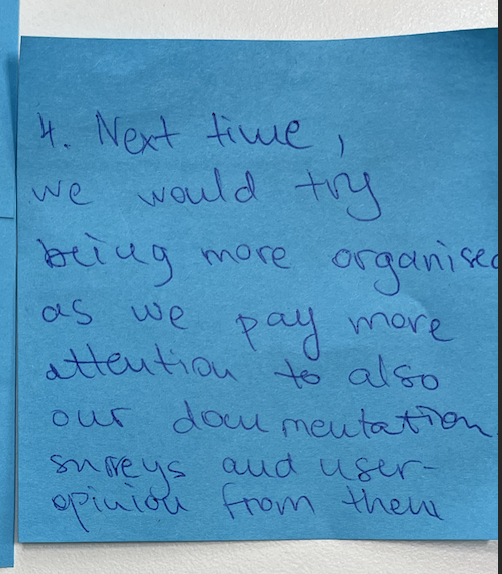 4. Next time,
we would try
being more organised
as we pay more
attention to also
our documentation
surveys and user-
opinion from them